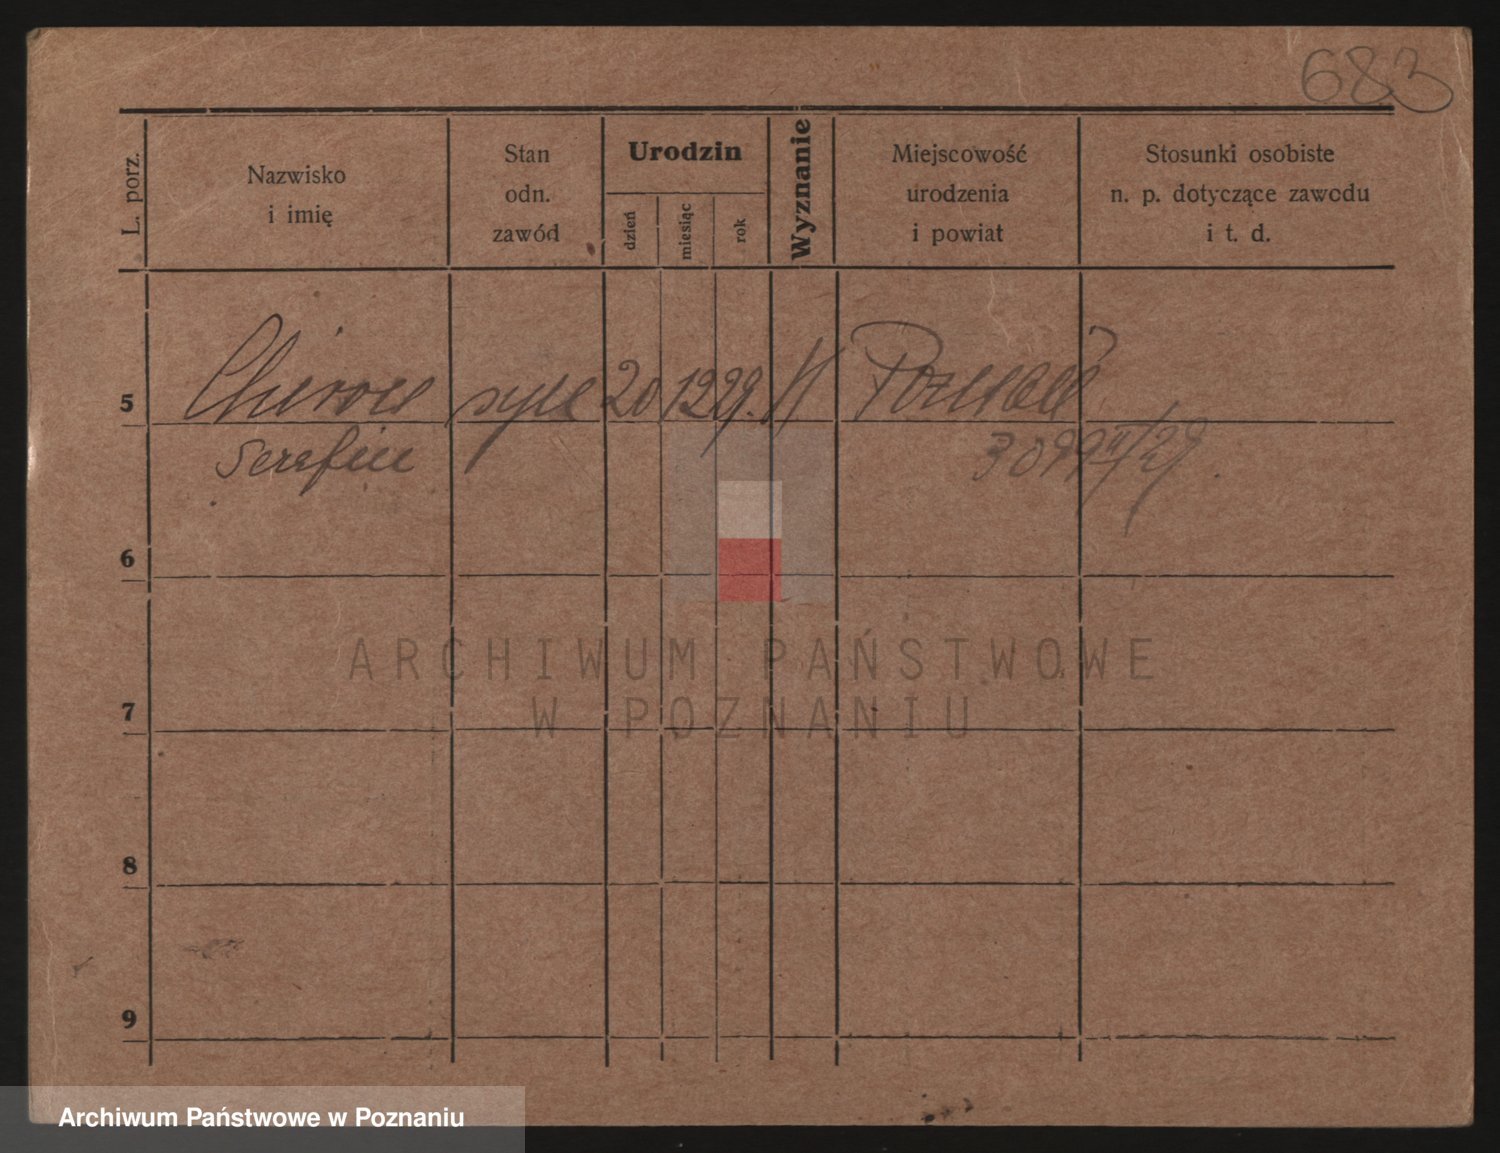 683
L. porz.
Nazwisko
i imię
Stan
odn.
zawód
Urodzin
dzień
miesiąc
rok
Wyznanie
Miejscowość
urodzenia
i powiat
Stosunki osobiste
n. p. dotyczące zawodu
i t. d.
5 syn 20 12 29. K Poznań
Serafin
6
ARCHIWUM PAŃSTWOWE
W POZNANIU
7
8
9
Archiwum Państwowe w Poznaniu